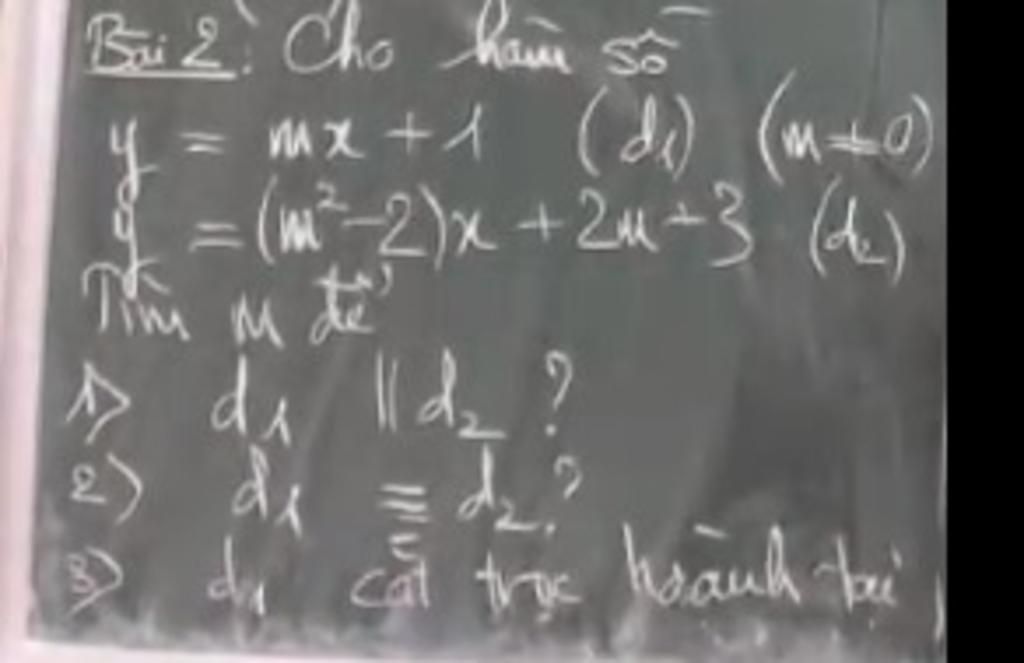 Bài 2: Cho hàm số
y = mx + 1 (d1) (m ≠ 0)
y = (m²-2)x + 2m+3 (d2)
Tìm m để
1) d1 || d2 ?
2) d1 ≡ d2 ?
3) d1 cắt trục hoành tại